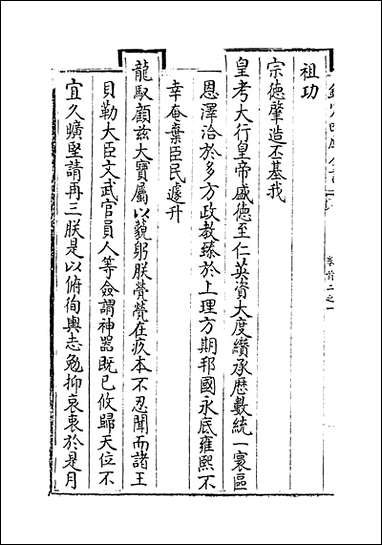 祖功
宗德肇造丕基我
皇考大行皇帝盛德至仁英資大度纘承歷數統一寰區
恩澤洽於多方政教臻於上理方期邦國永底雍熙不
幸奄棄臣民遽升
龍馭顧茲大寶屬以藐躬朕煢煢在疚本不忍聞而諸王
貝勒大臣文武官員人等僉謂神器既已攸歸天位不
宜久曠堅請再三朕是以俯徇輿志勉抑哀衷於是月
卷首二之一